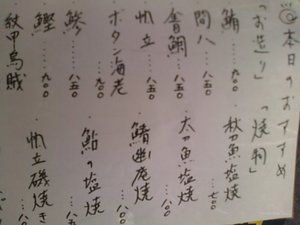 ◎本日のおすすめ
「お造り」
「焼物」
鮪……九〇〇
間八……八五〇
金目鯛……八五〇
帆立……八五〇
ボタン海老……九〇〇
鯵……八五〇
鰹……九〇〇
紋甲烏賊
秋刀魚塩焼……七〇〇
太刀魚塩焼……八〇〇
鰆幽庵焼……八〇〇
鮎の塩焼
帆立磯焼き